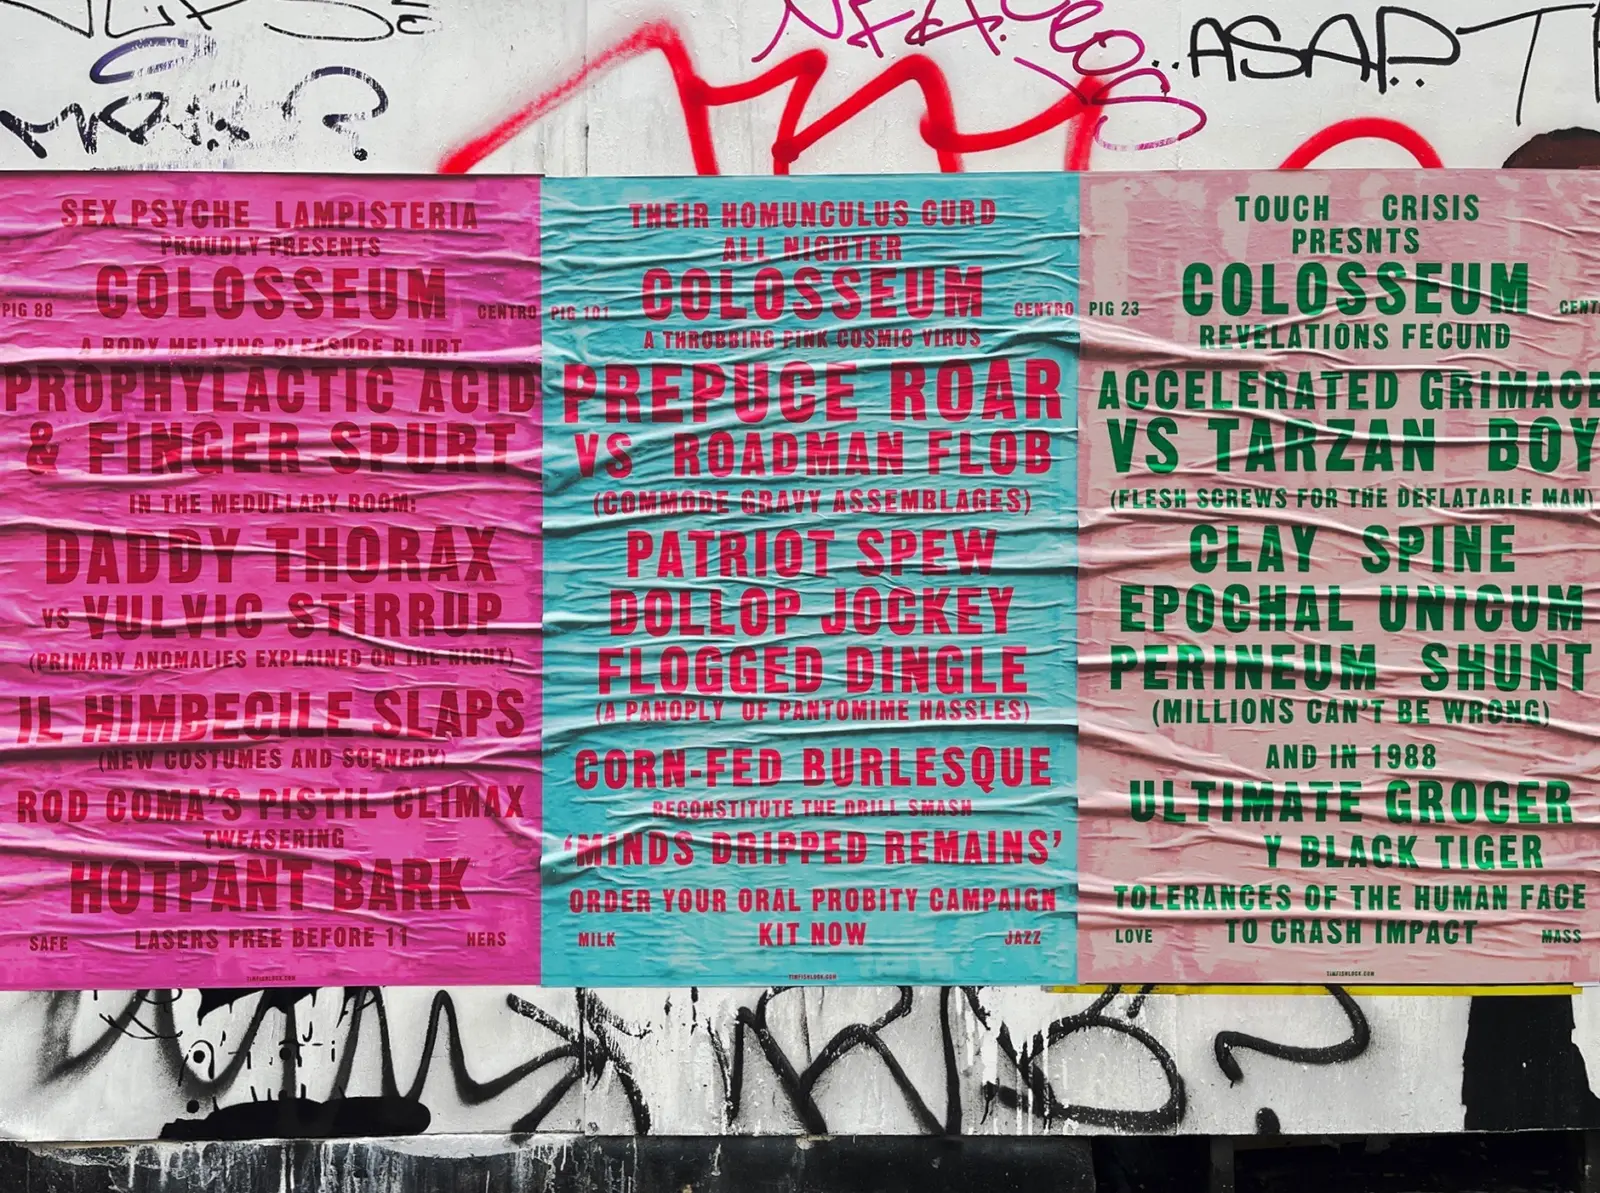 ASAP
SEX PSYCHE LAMPISTERIA
PROUDLY PRESENTS
COLOSSEUM
PIG 88 CENTRO
A BODY MELTING PLEASURE BLURT
PROPHYLACTIC ACID
& FINGER SPURT
IN THE MEDULLARY ROOM:
DADDY THORAX
VS VULVIC STIRRUP
(PRIMARY ANOMALIES EXPLAINED ON THE NIGHT)
IL HIMBECILE SLAPS
(NEW COSTUMES AND SCENERY)
ROD COMA'S PISTIL CLIMAX
TWEASERING
HOTPANT BARK
SAFE LASERS FREE BEFORE 11 HERS
TIMFISHLOCK.COM
THEIR HOMUNCULUS CURD
ALL NIGHTER
COLOSSEUM
PIG 101 CENTRO
A THROBBING PINK COSMIC VIRUS
PREPUCE ROAR
VS ROADMAN FLOB
(COMMODE GRAVY ASSEMBLAGES)
PATRIOT SPEW
DOLLOP JOCKEY
FLOGGED DINGLE
(A PANOPLY OF PANTOMIME HASSLES)
CORN-FED BURLESQUE
RECONSTITUTE THE DRILL SMASH
'MINDS DRIPPED REMAINS'
ORDER YOUR ORAL PROBITY CAMPAIGN
MILK KIT NOW JAZZ
TIMFISHLOCK.COM
TOUCH CRISIS
PRESNTS
COLOSSEUM
PIG 23 CENT
REVELATIONS FECUND
ACCELERATED GRIMACE
VS TARZAN BOY
(FLESH SCREWS FOR THE DEFLATABLE MAN)
CLAY SPINE
EPOCHAL UNICUM
PERINEUM SHUNT
(MILLIONS CAN'T BE WRONG)
AND IN 1988
ULTIMATE GROCER
Y BLACK TIGER
TOLERANCES OF THE HUMAN FACE
LOVE TO CRASH IMPACT MASS
TIMFISHLOCK.COM